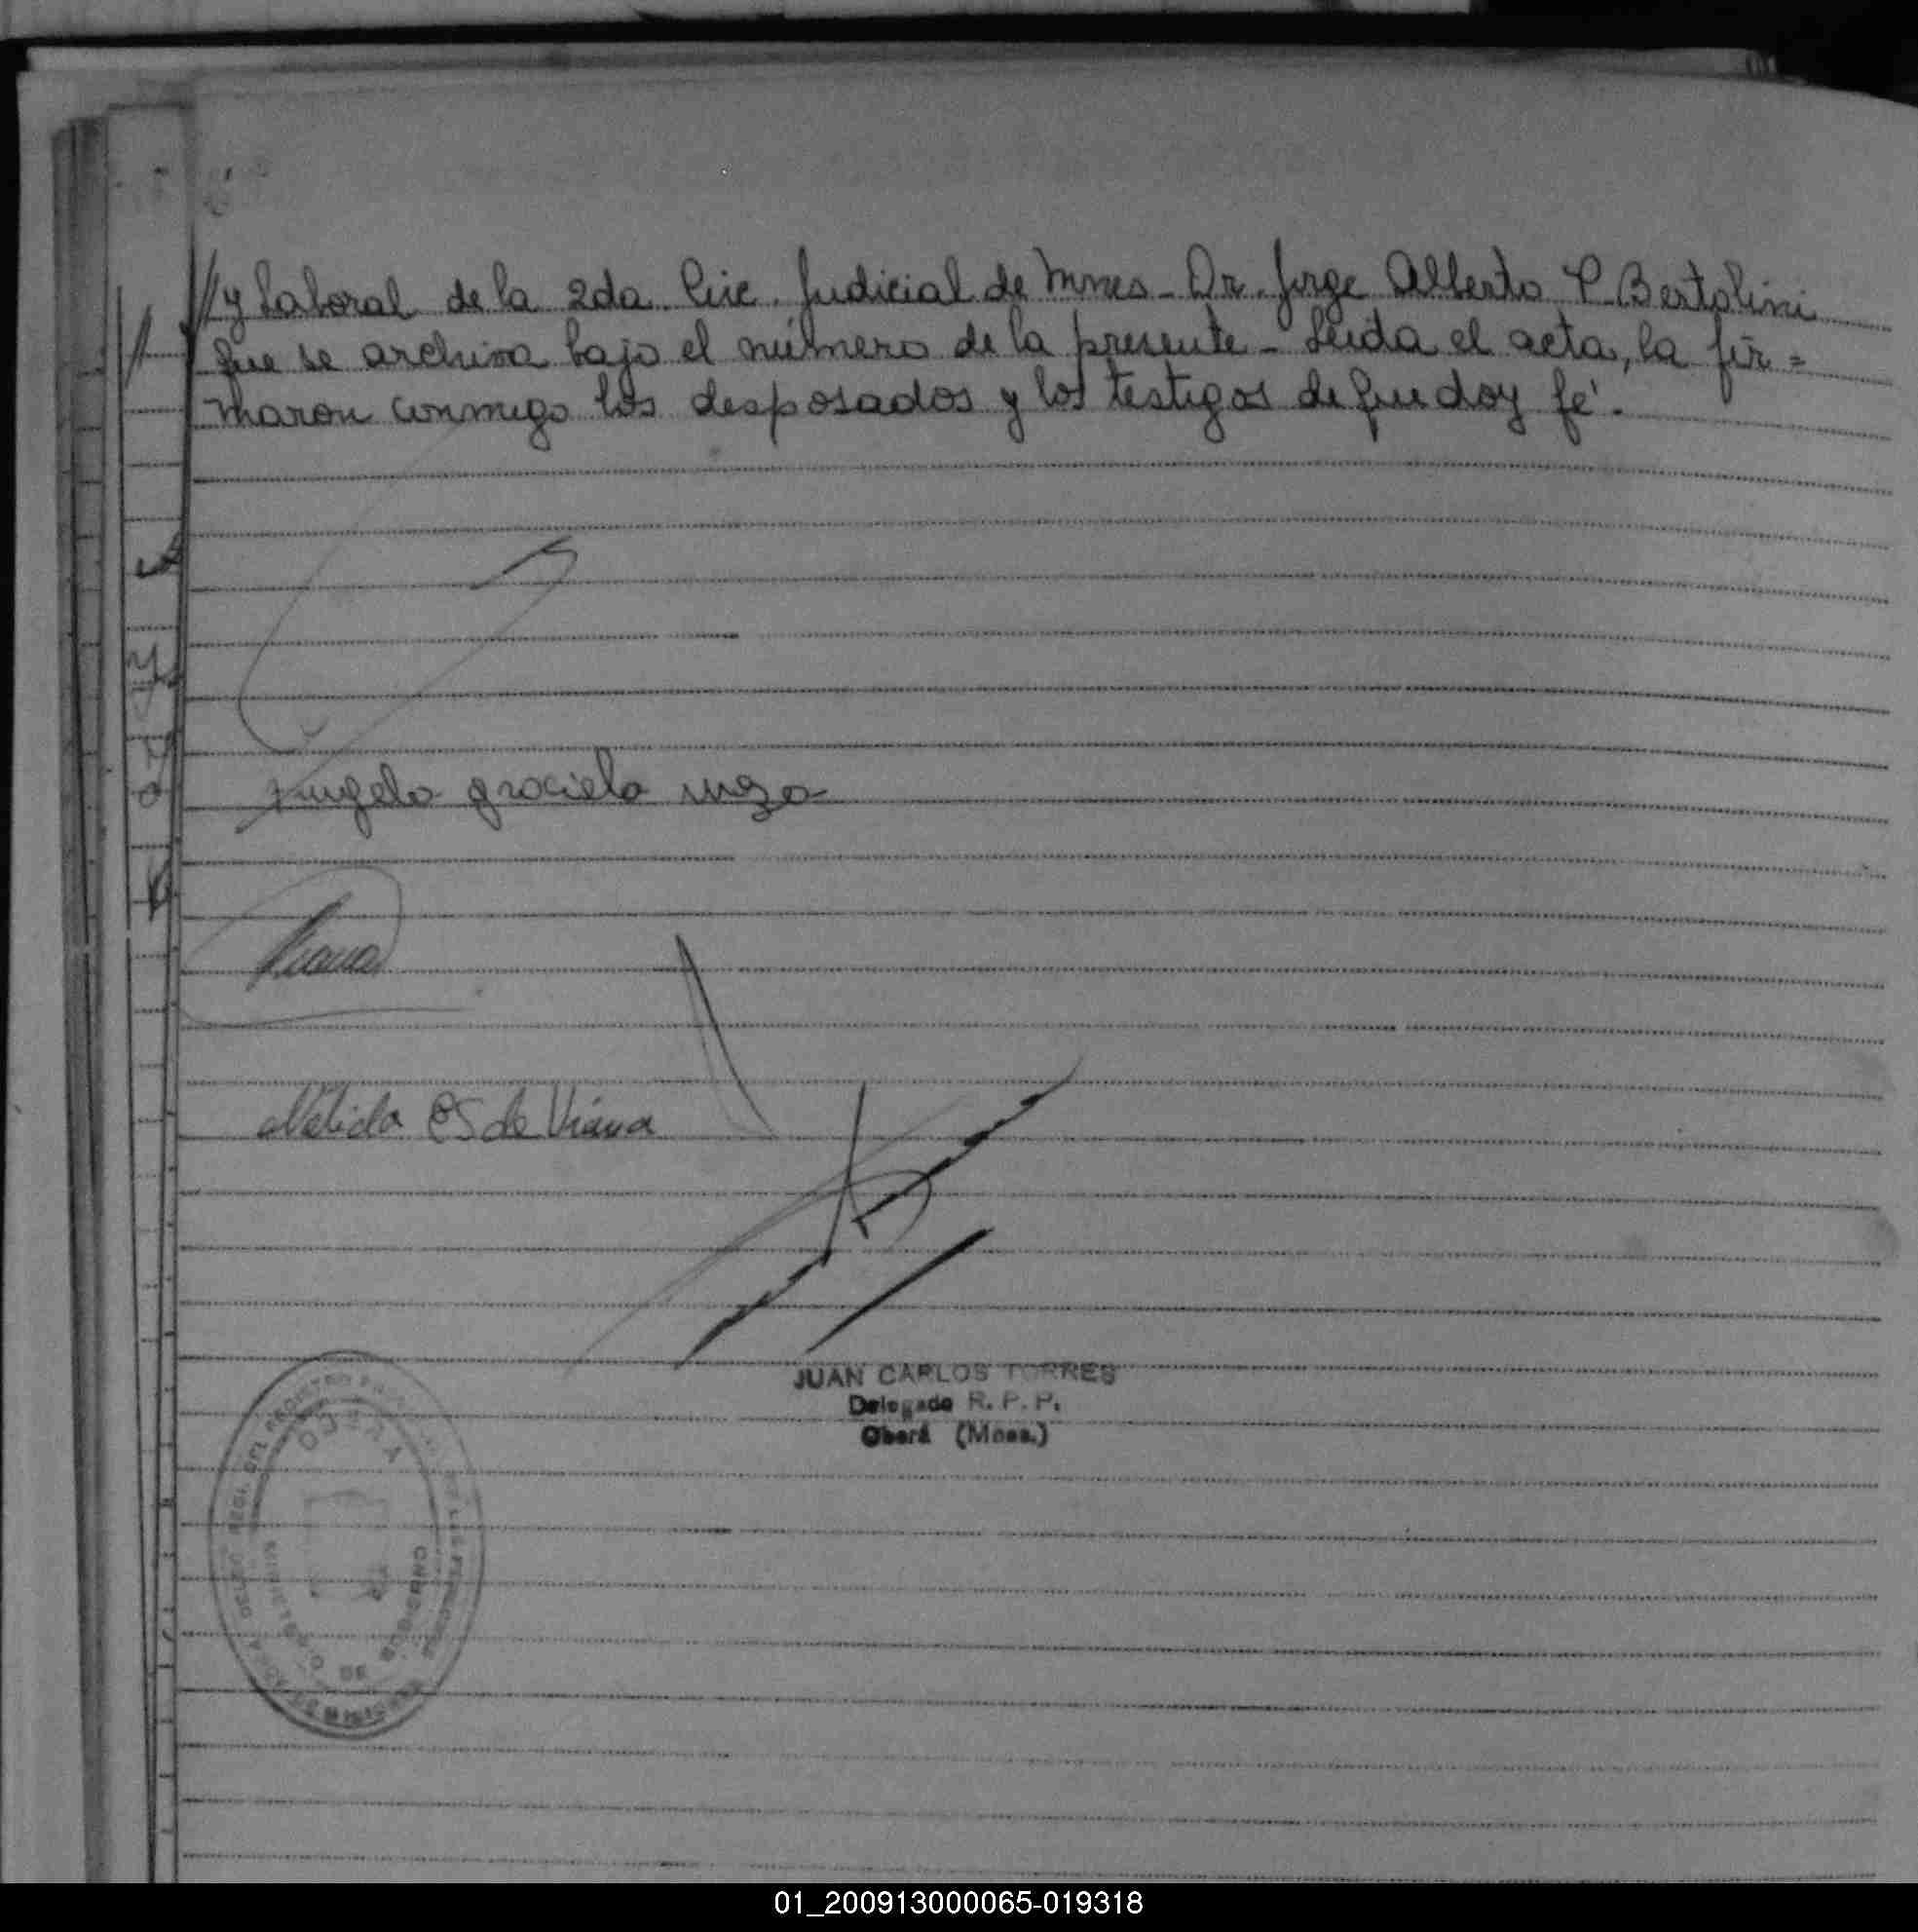 // y Laboral de la 2da. Circ. Judicial de Mnes - Dr. Jorge Alberto P. Bertolini
que se archiva bajo el número de la presente - Leida el acta, la fir=
maron conmigo los desposados y los testigos de que doy fé.
Angela graciela
Viana
Nélida ES de Viana
JUAN CARLOS TORRES
Delegado R. P. P.
Oberá (Mnes.)
OBERA
01_200913000065-019318